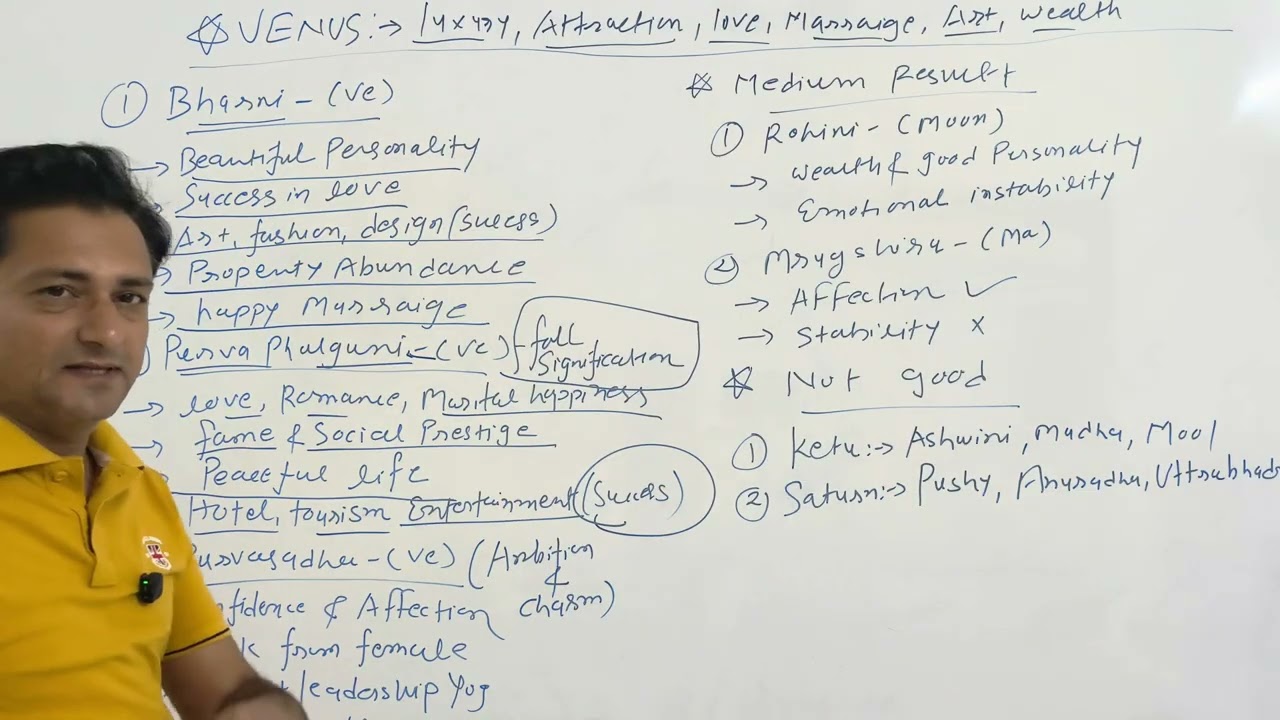 ☆ VENUS:→ luxury, Attraction, love, Marraige, Art, wealth
① Bharni - (Ve)
→ Beautiful Personality
Success in love
Art, fashion, design (success)
→ Property Abundance
→ happy Marraige
Purva Phalguni - (Ve) - full Signification
→ love, Romance, Marital happiness
→ fame & Social Prestige
Peaceful life
Hotel, tourism Entertainment (Success)
Purvasadha - (Ve) (Ambition & charm)
nfidence & Affection
k from female
leadership Yog
☆ Medium Result
① Rohini - (Moon)
→ wealth & good Personality
→ Emotional instability
② Mrugshira - (Ma)
→ Affection ✓
→ Stability ×
☆ Not good
① Ketu:→ Ashwini, Madha, Mool
② Saturn:→ Pushy, Anuradha, Uttrabhad